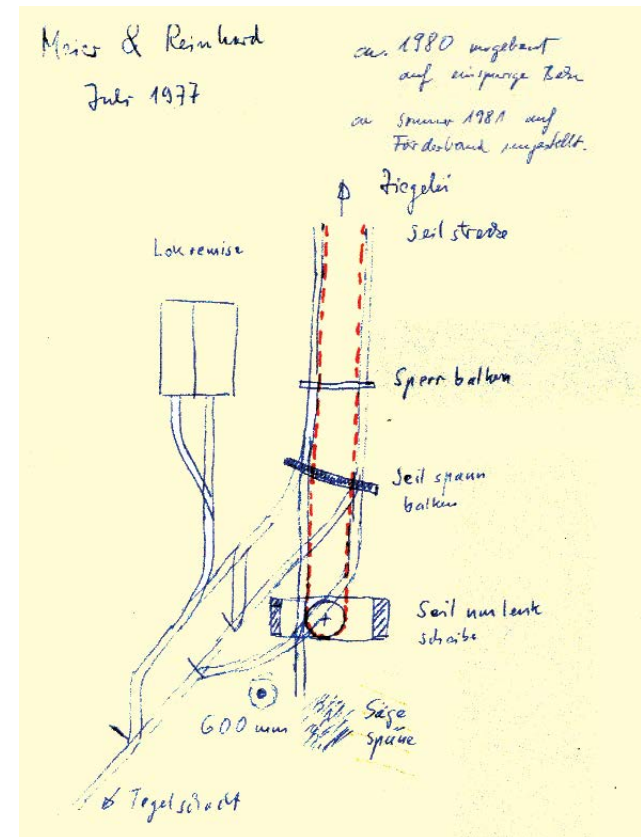 Meier & Reinhard
Juli 1977
ca. 1980 umgebaut
auf einspurige Bahn
ca Sommer 1981 auf
Förderband umgestellt.
Ziegelei
Seilstrecke
Lokremise
Sperrbalken
Seilspann
balken
Seilumlenk
scheibe
600 mm
Säge
späne
Tegelschacht